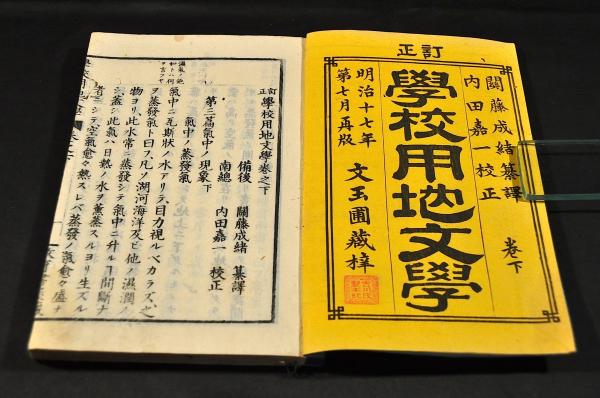 訂正
關藤成緒纂譯
内田嘉一校正
卷下
學校用地文學
明治十七年
第七月再版
文玉圃藏梓
訂正 學校用地文學卷之下
備後 關藤成緒 纂譯
南總 内田嘉一 校正
第三篇氣中ノ現象下
氣中ノ蒸發氣
氣中ニ瓦斯狀ノ水アリテ、目力視ルベカラズ、之
ヲ蒸發氣ト曰フ、凡ソ湖河海洋及ビ他ノ濕潤ノ
物ヨリ此水常ニ蒸發シテ氣中ニ升ルヿ間斷ナ
シ、蓋シ此氣ハ日熱ノ水ヲ薰蒸スルヨリ生ズル
者ニシテ、空氣愈熱スレバ蒸發ノ氣愈盛ナ